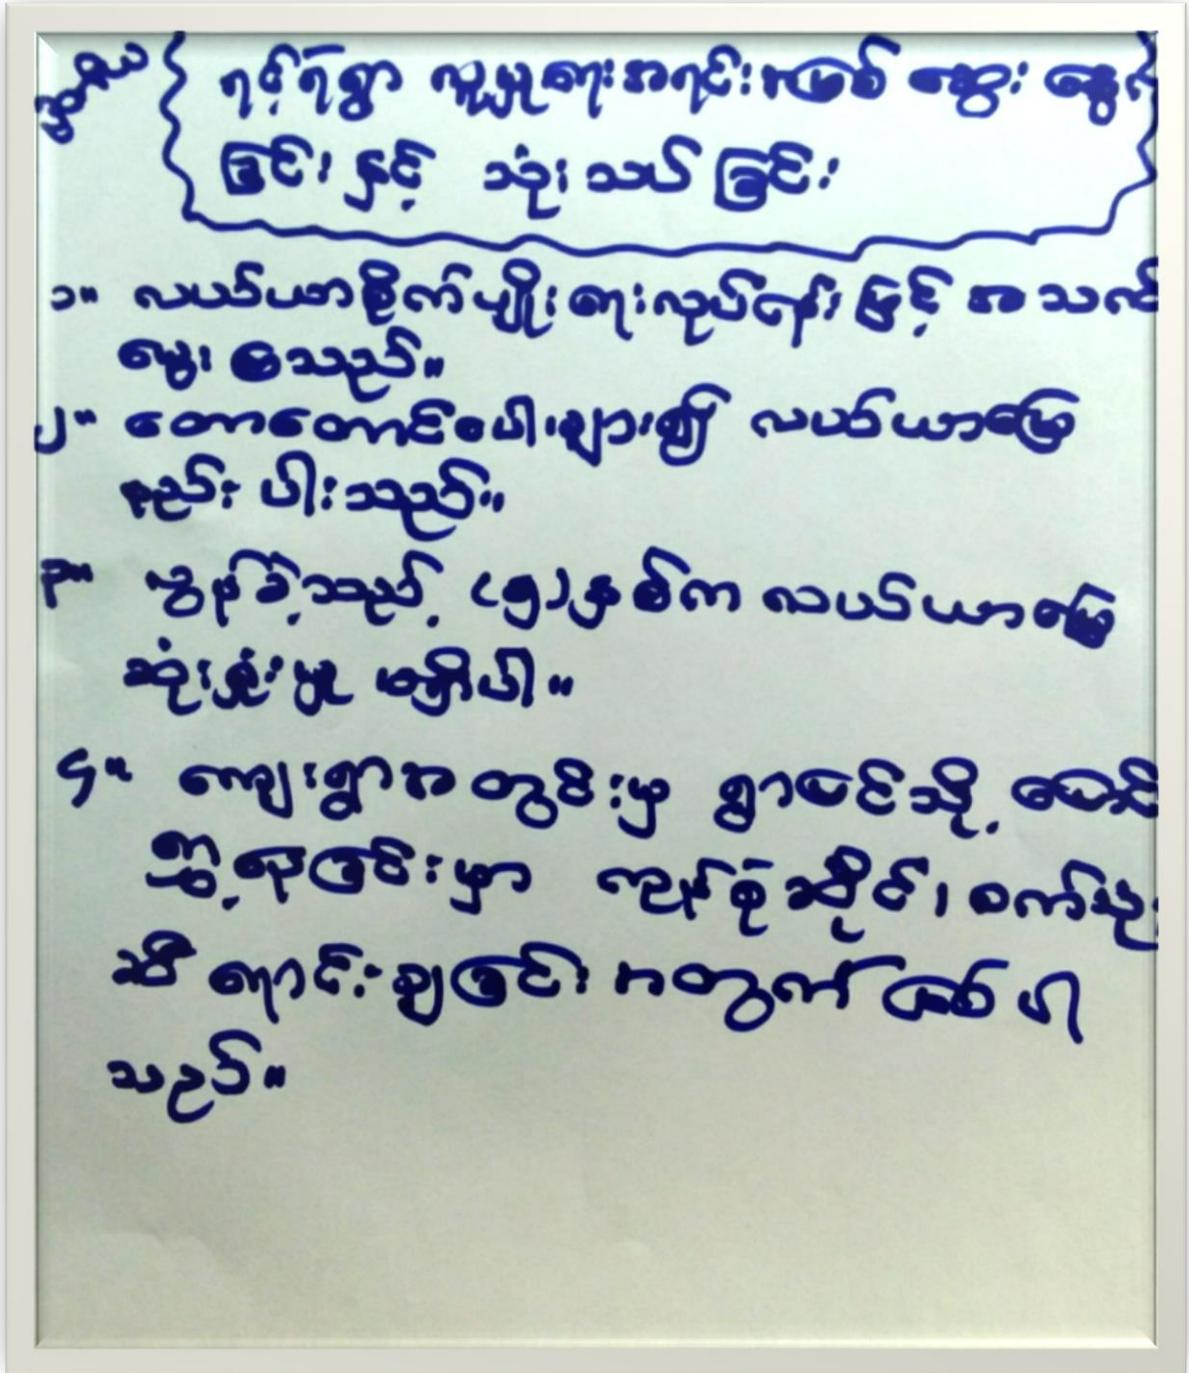 ရင့်ရဲရွာ လူမှုရေးအရင်းအမြစ် ဆွေးနွေး
ခြင်း နှင့် သုံးသပ်ခြင်း
၁။ လယ်ယာစိုက်ပျိုးရေးလုပ်ငန်းဖြင့် အသက်
မွေး ကြသည်။
၂။ တောတောင်ပေါများ၍ လယ်ယာမြေ
နည်းပါးသည်။
၃။ လွန်ခဲ့သည့် (၅)နှစ်က လယ်ယာမြေ
ဆုံးရှုံးမှု မရှိပါ။
၄။ ကျေးရွာအတွင်းမှ ရွာပြင်သို့ ပြောင်း
ရွှေ့နေခြင်းမှာ ကုန်စုံဆိုင်၊ စက်သုံး
ဆီ ရောင်းချခြင်း အတွက်ဖြစ်ပါ
သည်။